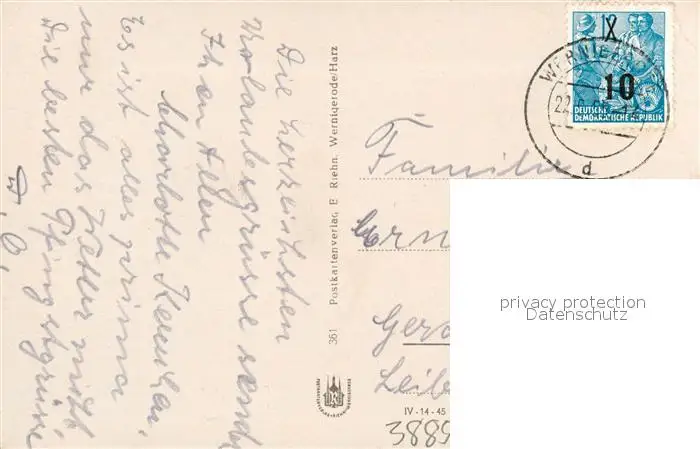 Die herzlichsten
Urlaubsgrüsse sendet
Ihnen allen
Charlotte
Es ist alles prima
nur das Wetter nicht
Die besten Pfingstgrüsse
D. O.
361 Postkartenverlag, E. Riehn, Wernigerode/Harz
12
X
10
DEUTSCHE
DEMOKRATISCHE REPUBLIK
WERNIGE
22
d
Familie
Ern
Gera
IV - 14 - 45
privacy protection
Datenschutz